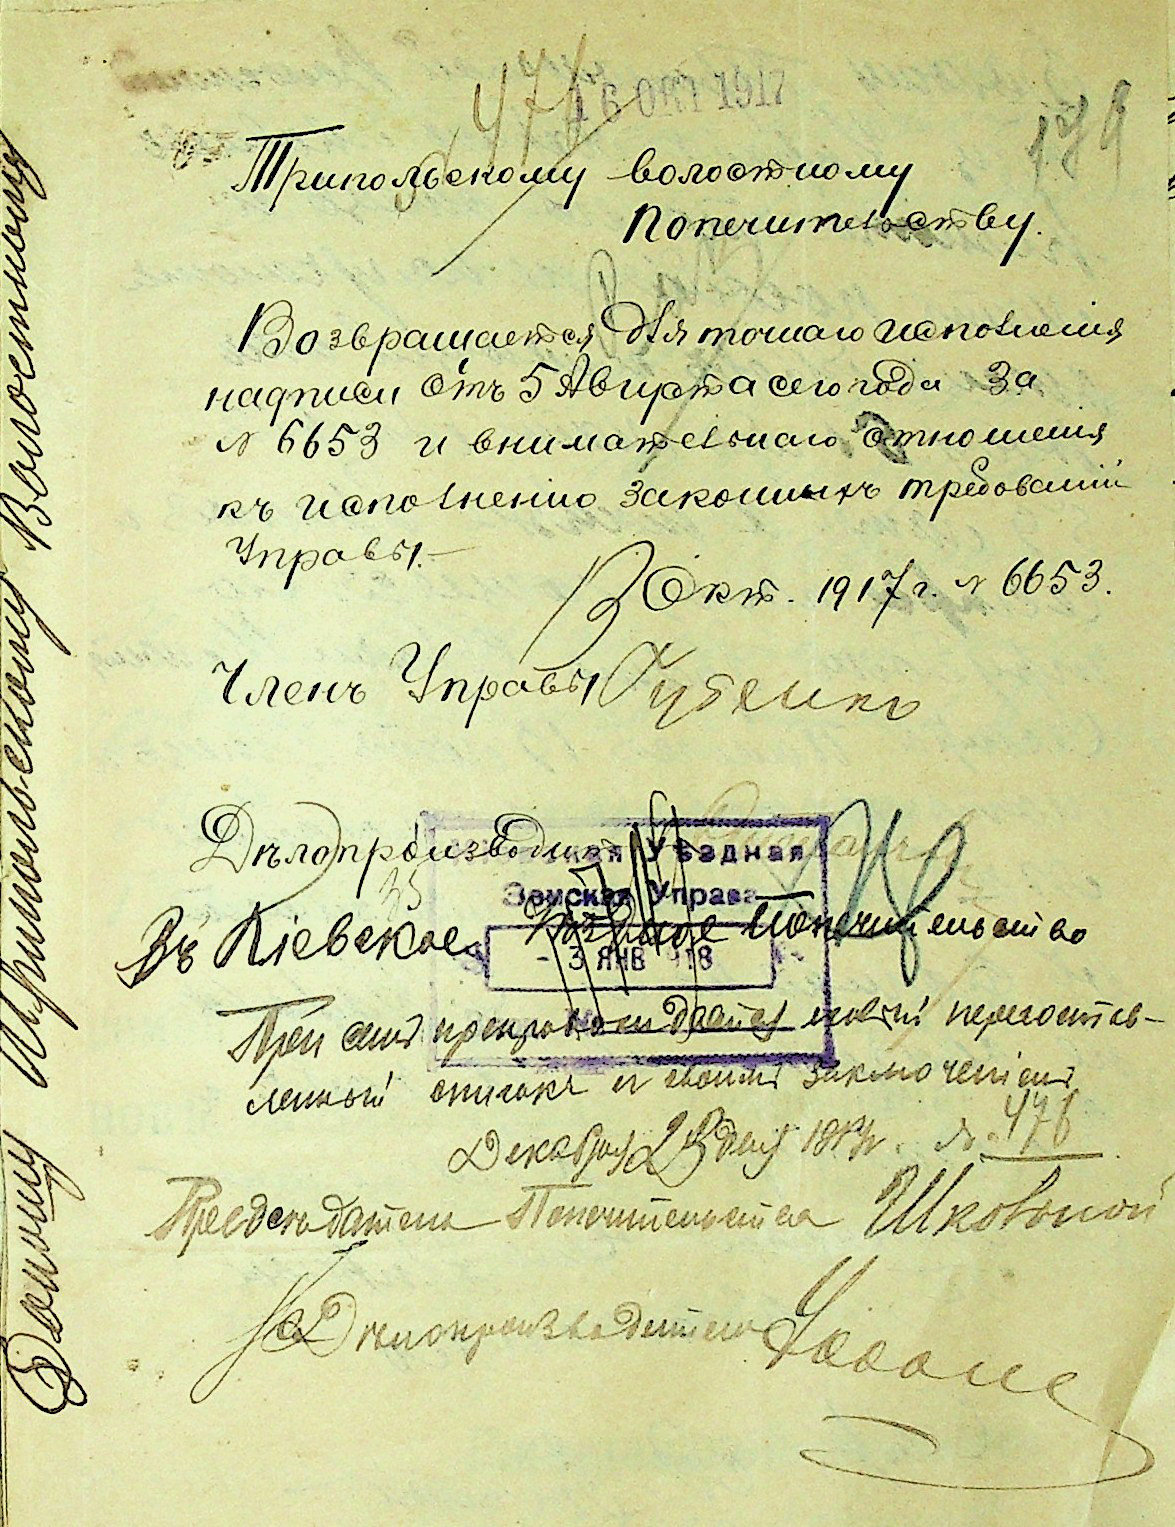 476
16 ОКТ 1917
179
Трипольскому волостному
Попечительству.
Возвращается для точнаго исполненія
надписи отъ 5 Августа сего года за
№ 6653 и внимательнаго отношенія
къ исполненію законныхъ требованій
Управы.
3 Окт. 1917 г. № 6653.
Членъ Управы
Дѣлопроизводит
Уѣздная
Земская Управа
- 3 ЯНВ 918
Въ Кіевское Уѣздное Попечительство
При семъ препровождается
списокъ и своимъ заключеніемъ
Декабря 28 дня 1917 г. № 476
Предсѣдатель Попечительства Школьной
Дѣлопроизводитель
Трипольскому Волостному